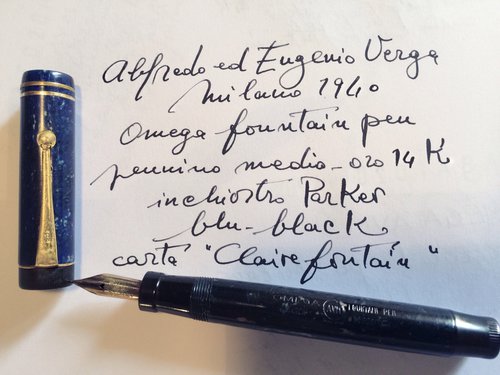 Alfredo ed Eugenio Verga
milano 1940
Omega fountain pen
pennino medio - oro 14 K
inchiostro Parker
blu-black
carta "Clairefontain"
OMEGA
FOUNTAIN PEN